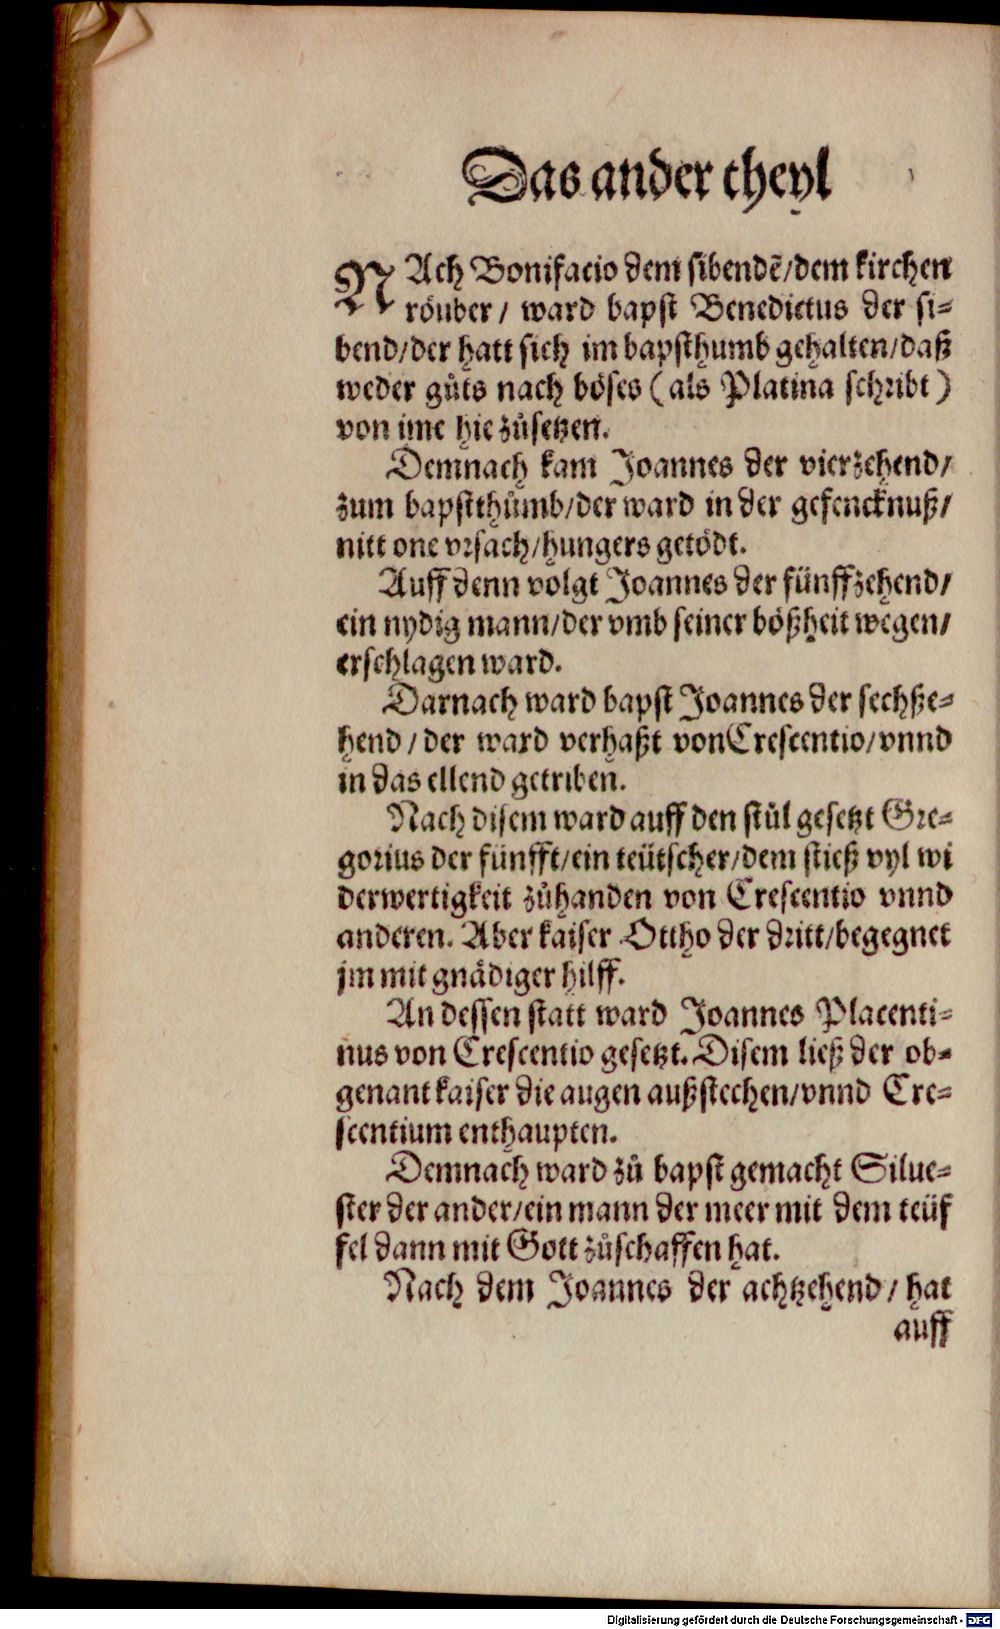 Das ander theyl
NAch Bonifacio dem sibendẽ/dem kirchen
röuber/ ward bapst Benedictus der si-
bend/der hatt sich im bapsthumb gehalten/daß
weder gůts nach böses (als Platina schribt)
von ime hie zůsetzen.
Demnach kam Joannes der vierzehend/
zum bapstthůmb/der ward in der gefencknuß/
nitt one vrsach/hungers getödt.
Auff denn volgt Joannes der fünffzehend/
ein nydig mann/der vmb seiner bößheit wegen/
erschlagen ward.
Darnach ward bapst Joannes der sechße-
hend/ der ward verhaßt von Crescentio/vnnd
in das ellend getriben.
Nach disem ward auff den stůl gesetzt Gre-
gorius der fünfft/ein teütscher/dem stieß vyl wi
derwertigkeit zůhanden von Crescentio vnnd
anderen. Aber kaiser Ottho der dritt/begegnet
jm mit gnädiger hilff.
An dessen statt ward Joannes Placenti-
nus von Crescentio gesetzt. Disem ließ der ob-
genant kaiser die augen außstechen/vnnd Cre-
scentium enthaupten.
Demnach ward zů bapst gemacht Silue-
ster der ander/ein mann der meer mit dem teüf
fel dann mit Gott zůschaffen hat.
Nach dem Joannes der achtzehend/ hat
auff
Digitalisierung gefördert durch die Deutsche Forschungsgemeinschaft - DFG